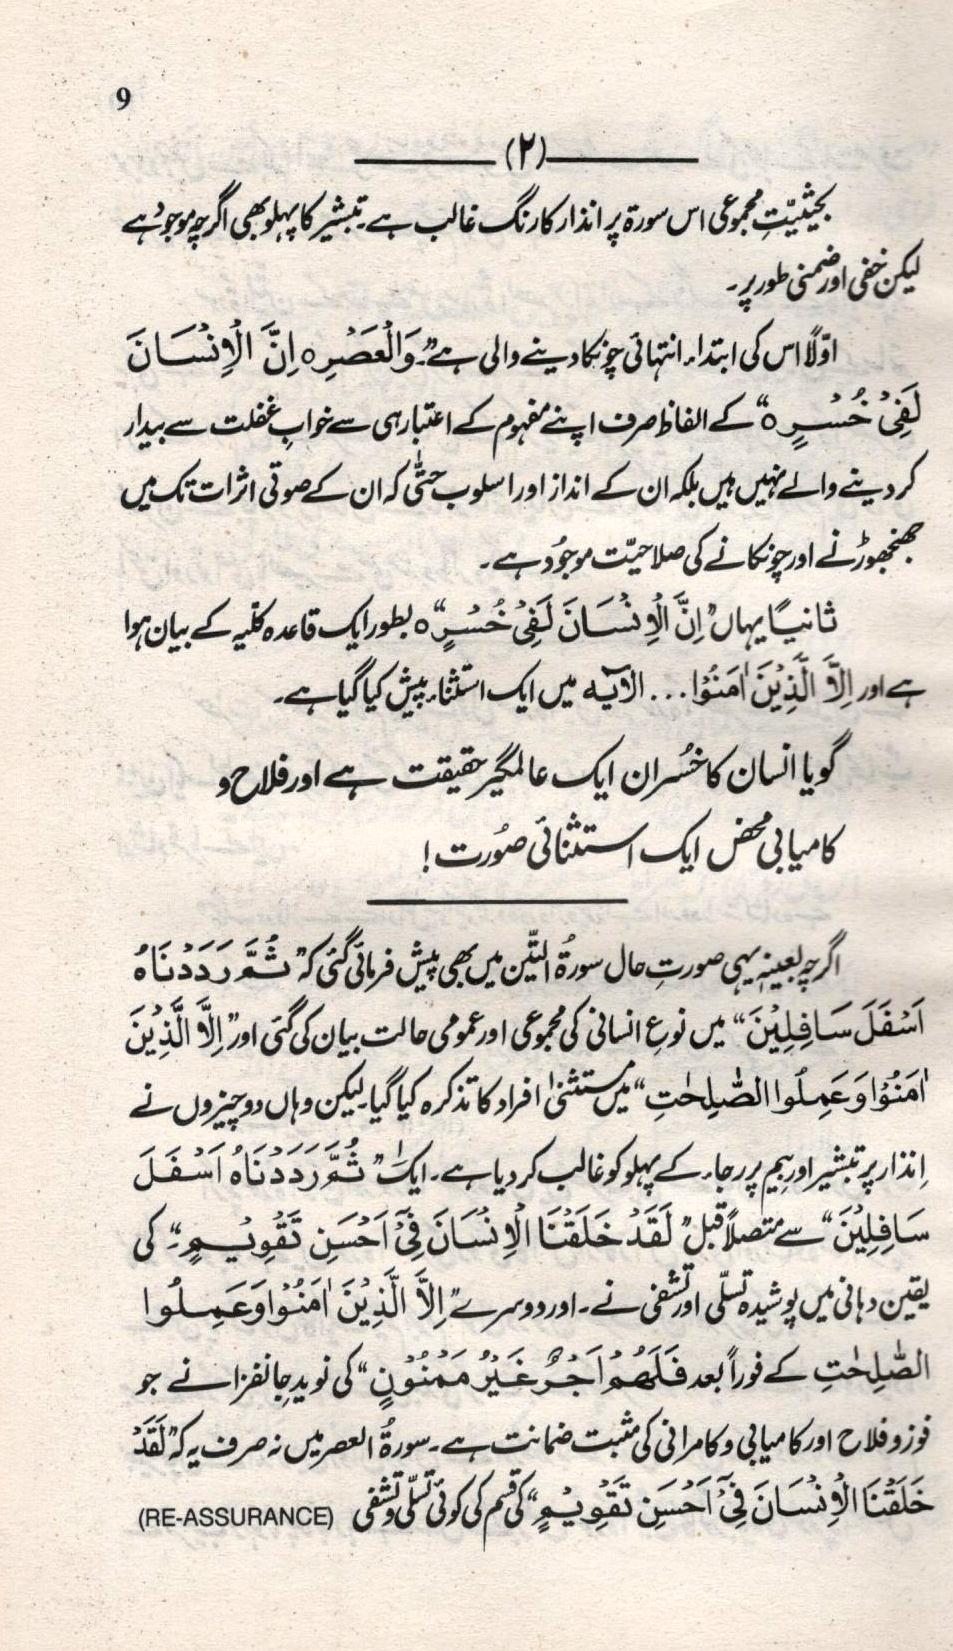 9
(۲)
بحیثیتِ مجموعی اس سورۃ پر انذار کا رنگ غالب ہے۔ تبشیر کا پہلو بھی اگرچہ موجُود ہے
لیکن خفی اور ضمنی طور پر۔
اوّلاً اس کی ابتداء انتہائی چونکا دینے والی ہے۔ ”وَالْعَصْرِ ہ اِنَّ الْاِنْسَانَ
لَفِیْ خُسْرٍ ہ“ کے الفاظ صرف اپنے مفہوم کے اعتبار ہی سے خوابِ غفلت سے بیدار
کر دینے والے نہیں ہیں بلکہ ان کے انداز اور اسلوب حتّٰی کہ ان کے صوتی اثرات تک میں
جھنجھوڑنے اور چونکانے کی صلاحیّت موجُود ہے۔
ثانیًا یہاں ”اِنَّ الْاِنْسَانَ لَفِیْ خُسْرٍ“ ہ بطور ایک قاعدہ کلّیہ کے بیان ہوا
ہے اور اِلَّا الَّذِیْنَ اٰمَنُوْا... الآیہ میں ایک استثناء پیش کیا گیا ہے۔
گویا انسان کا خُسران ایک عالمگیر حقیقت ہے اور فلاح و
کامیابی محض ایک استثنائی صُورت!
اگرچہ بعینہٖ یہی صورتِ حال سورۃُ التّین میں بھی پیش فرمائی گئی کہ ”ثُمَّ رَدَدْنَاہُ
اَسْفَلَ سَافِلِیْنَ“ میں نوعِ انسانی کی مجموعی اور عمومی حالت بیان کی گئی اور ”اِلَّا الَّذِیْنَ
اٰمَنُوْا وَعَمِلُوا الصّٰلِحٰتِ“ میں مستثنیٰ افراد کا تذکرہ کیا گیا۔ لیکن وہاں دو چیزوں نے
اِنذار پر تبشیر اور بیم پر رجاء کے پہلو کو غالب کر دیا ہے۔ ایک ”ثُمَّ رَدَدْنَاہُ اَسْفَلَ
سَافِلِیْنَ“ سے متصلاً قبل ”لَقَدْ خَلَقْنَا الْاِنْسَانَ فِیْٓ اَحْسَنِ تَقْوِیْمٍ“ کی
یقین دہانی میں پوشیدہ تسلّی اور تشفی نے۔ اور دوسرے ”اِلَّا الَّذِیْنَ اٰمَنُوْا وَعَمِلُوا
الصّٰلِحٰتِ کے فوراً بعد فَلَھُمْ اَجْرٌ غَیْرُ مَمْنُوْنٍ“ کی نویدِ جانفزا نے جو
فوز و فلاح اور کامیابی و کامرانی کی مثبت ضمانت ہے۔ سورۃُ العصر میں نہ صرف یہ کہ ”لَقَدْ
خَلَقْنَا الْاِنْسَانَ فِیْٓ اَحْسَنِ تَقْوِیْمٍ“ کی قسم کی کوئی تسلّی و تشفی (RE-ASSURANCE)